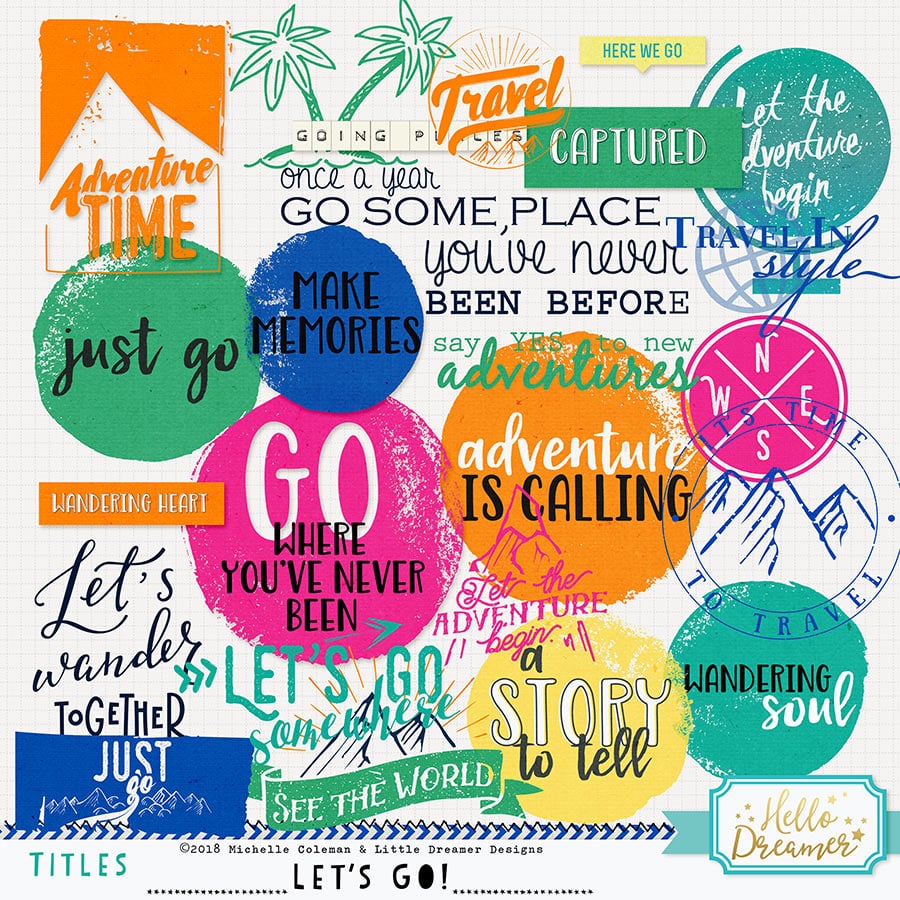 HERE WE GO
Travel
GOING PLACES
CAPTURED
Let the
adventure
begin
Adventure
TIME
once a year
GO SOME PLACE
you've never
BEEN BEFORE
TRAVEL IN
style
just go
MAKE
MEMORIES
say YES to new
adventures
N
W E
S
GO
WHERE
YOU'VE NEVER
BEEN
adventure
IS CALLING
ITS TIME
TO TRAVEL
WANDERING HEART
Let's
wander
TOGETHER
Let the
ADVENTURE
begin
LET'S GO
somewhere
a
STORY
to tell
WANDERING
soul
JUST
go
SEE THE WORLD
Hello
Dreamer
TITLES
©2018 Michelle Coleman & Little Dreamer Designs
LET'S GO!